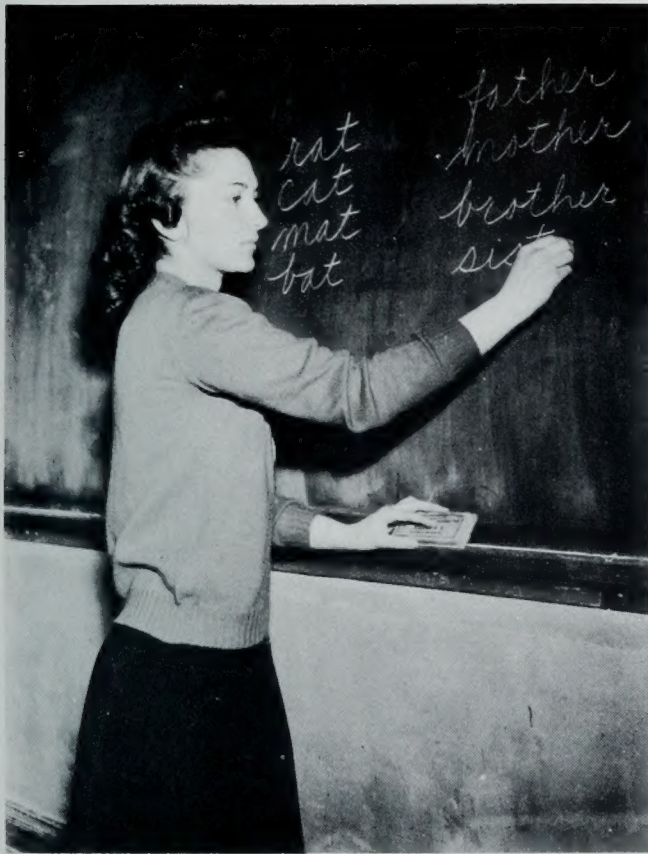 rat
cat
mat
bat
father
mother
brother
sist